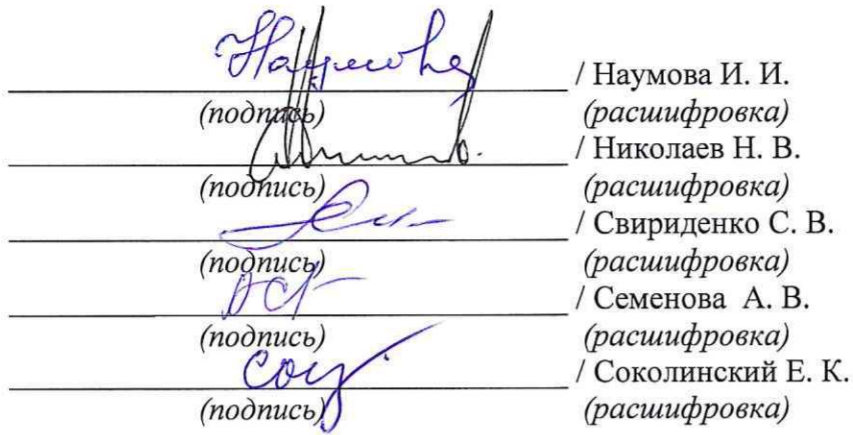 Наумова / Наумова И. И.
(подпись) (расшифровка)
/ Николаев Н. В.
(подпись) (расшифровка)
/ Свириденко С. В.
(подпись) (расшифровка)
/ Семенова А. В.
(подпись) (расшифровка)
/ Соколинский Е. К.
(подпись) (расшифровка)